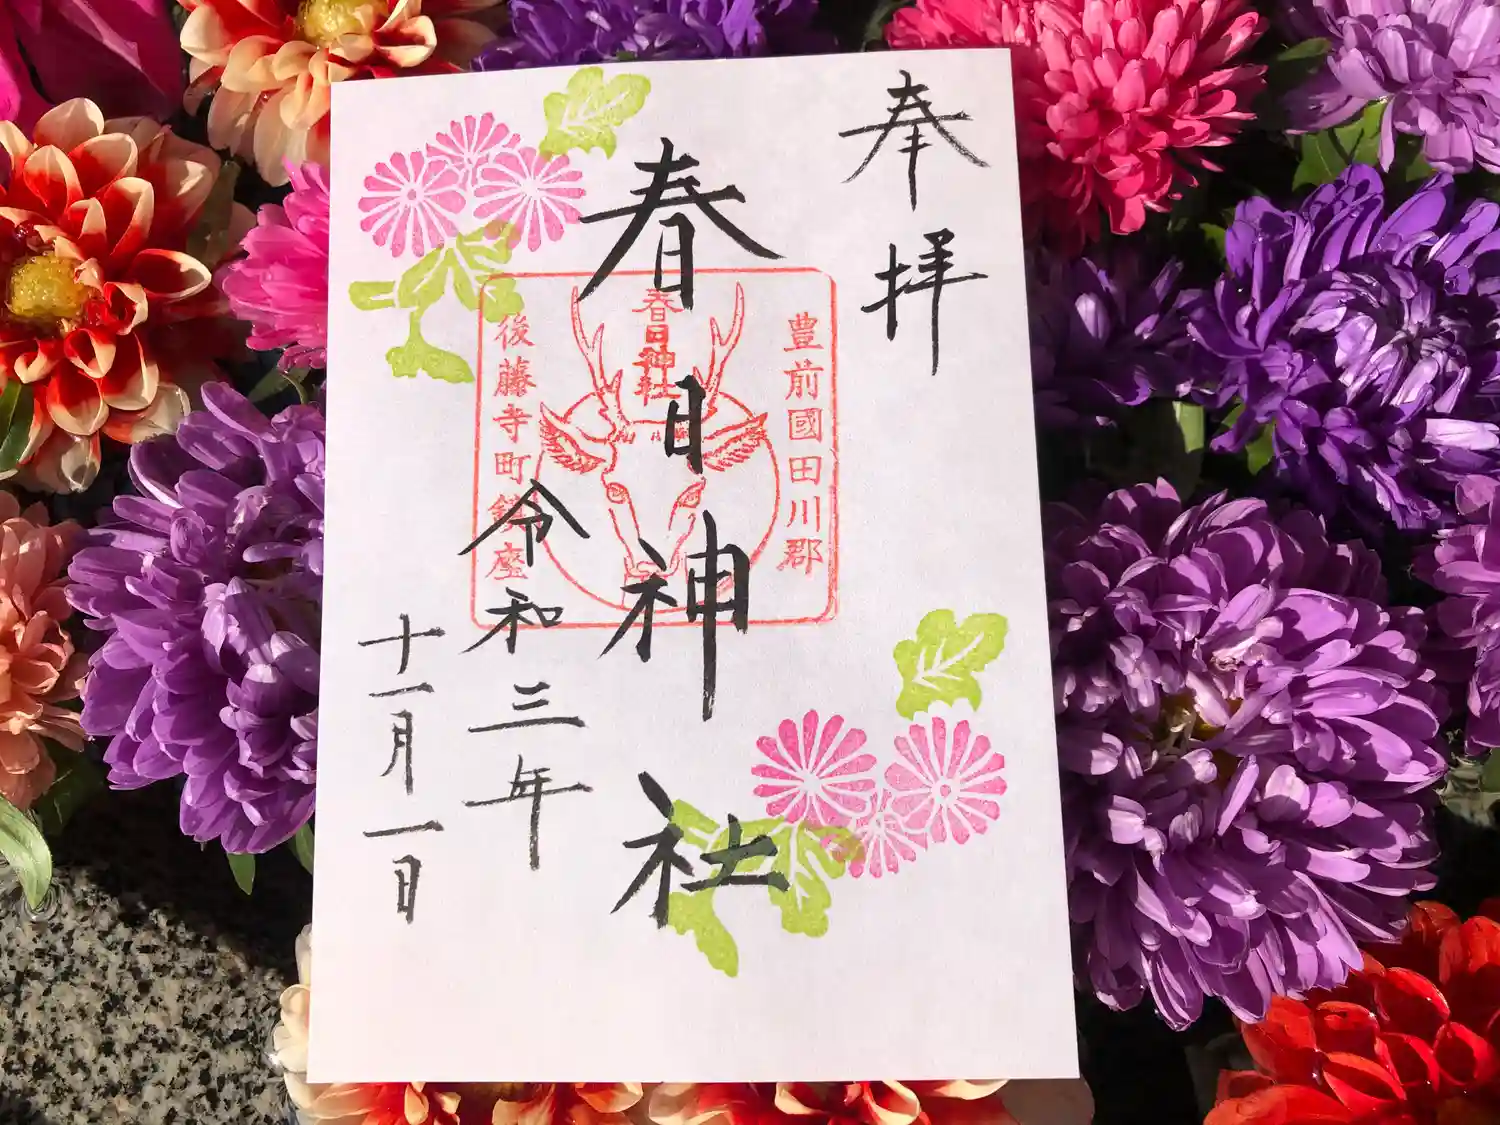 奉拝
春日神社
令和三年
十一月一日
豊前國田川郡
春日神社
後藤寺町鎮座